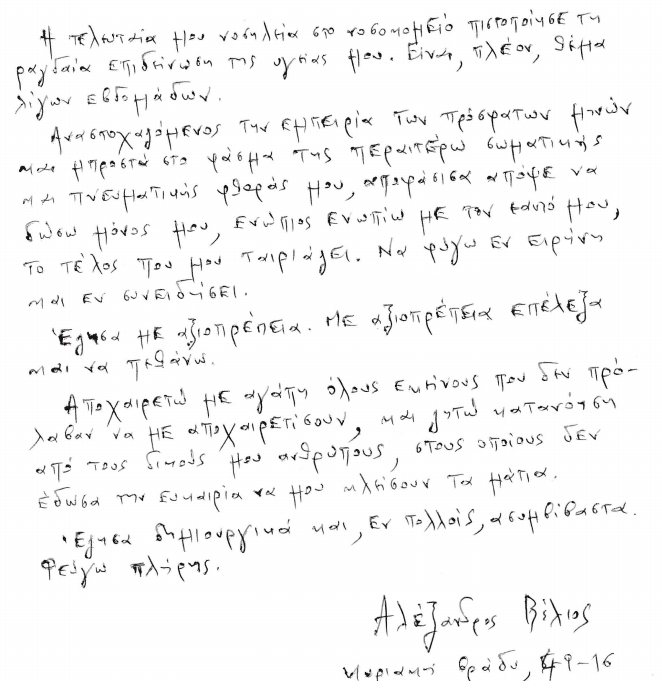 Η τελευταία μου νοσηλεία στο νοσοκομείο πιστοποίησε τη
ραγδαία επιδείνωση της υγείας μου. Είναι, πλέον, θέμα
λίγων εβδομάδων.
Αναστοχαζόμενος την εμπειρία των πρόσφατων μηνών
και μπροστά στο φάσμα της περαιτέρω σωματικής
και πνευματικής φθοράς μου, αποφάσισα απόψε να
δώσω μόνος μου, ενώπιος ενωπίω με τον εαυτό μου,
το τέλος που μου ταιριάζει. Να φύγω εν ειρήνη
και εν συνειδήσει.
Έζησα με αξιοπρέπεια. Με αξιοπρέπεια επέλεξα
και να πεθάνω.
Αποχαιρετώ με αγάπη όλους εκείνους που δεν πρό-
λαβαν να με αποχαιρετίσουν, και ζητώ κατανόηση
από τους δικούς μου ανθρώπους, στους οποίους δεν
έδωσα την ευκαιρία να μου κλείσουν τα μάτια.
Έζησα δημιουργικά και, εν πολλοίς, ασυμβίβαστα.
Φεύγω πλήρης.
Αλέξανδρος Βέλιος
Κυριακή βράδυ, 4-9-16